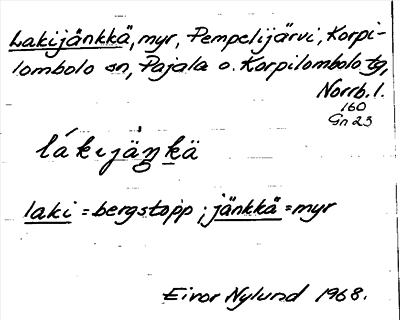 Lakijänkkä, myr, Pempelijärvi, Korpi-
lombolo sn, Pajala o. Korpilombolo tg,
Norrb. l.
160
Gn 23
lákijäŋkä
laki = bergstopp; jänkkä = myr
Eivor Nylund 1968.